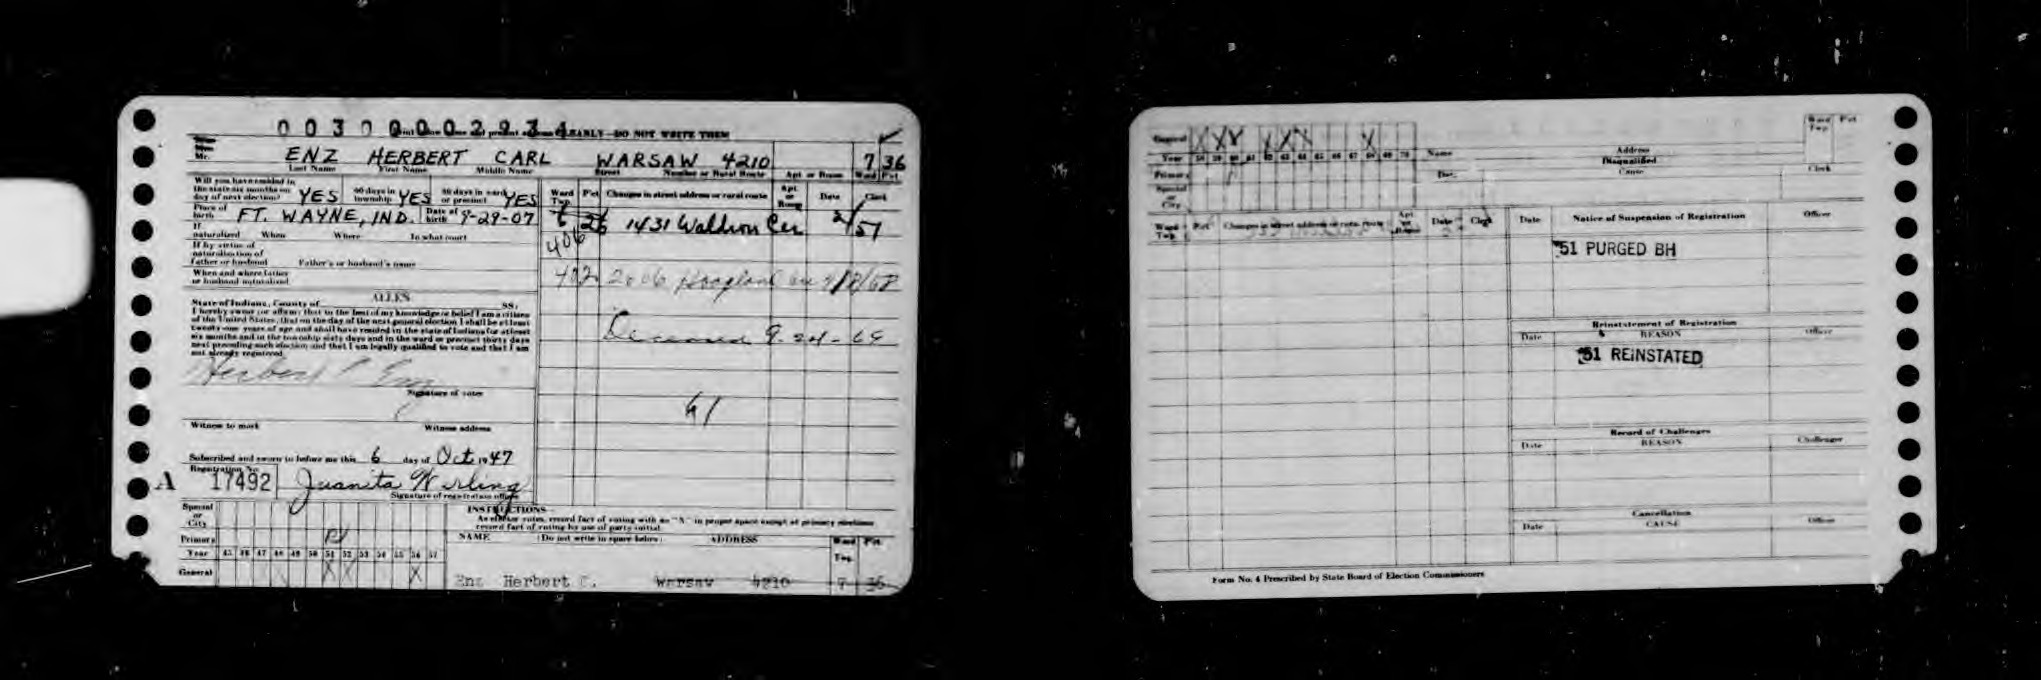 0030000293
CLEARLY—DO NOT WRITE THEM
Mr. ENZ HERBERT CARL WARSAW 4210 7 36
Last Name First Name Middle Name Street Number or Rural Route Apt or Room Ward Pct
Will you have resided in the state six months on day of next election? YES 60 days in township YES 30 days in ward or precinct YES
Place of birth FT. WAYNE, IND. Date of birth 9-29-07
If naturalized When Where In what court
If by virtue of naturalization of Father or husband Father's or husband's name
When and where father or husband naturalized
State of Indiana, County of ALLEN SS:
I hereby swear (or affirm) that to the best of my knowledge or belief I am a citizen
of the United States, that on the day of the next general election I shall be at least
twenty-one years of age and shall have resided in the state of Indiana for at least
six months and in the township sixty days and in the ward or precinct thirty days
next preceding such election and that I am legally qualified to vote and that I am
not already registered.
Herbert C Enz
Signature of voter
Witness to mark Witness address
Subscribed and sworn to before me this 6 day of Oct 1947
Registration No.
A 17492 Juanita Werling
Signature of registration officer
Ward Twp. Pct Changes in street address or rural route Apt or Room Date Clerk
26 1431 Waldron Cir 51
406
402 2006 Hoagland
Deceased 9-24-69
61
Special or City
Primary
Year 45 46 47 48 49 50 51 52 53 54 55 56 57
General X X X
INSTRUCTIONS
As elector votes, record fact of voting with an "X" in proper space except at primary elections
record fact of voting by use of party initial.
NAME (Do not write in space below) ADDRESS Ward Twp. Pct.
Enz Herbert C. Warsaw 4210 7 36
General X X X X X X X
Year 58 59 60 61 62 63 64 65 66 67 68 69 70
Primary
Special or City
Name Address Ward Twp. Pct
Disqualified
Date Cause Clerk
Ward Twp. Pct Changes in street address or rural route Apt or Room Date Clerk
Date Notice of Suspension of Registration Officer
'51 PURGED BH
Reinstatement of Registration
Date REASON Officer
'51 REINSTATED
Record of Challenges
Date REASON Challenger
Cancellation
Date CAUSE Officer
Form No. 4 Prescribed by State Board of Election Commissioners